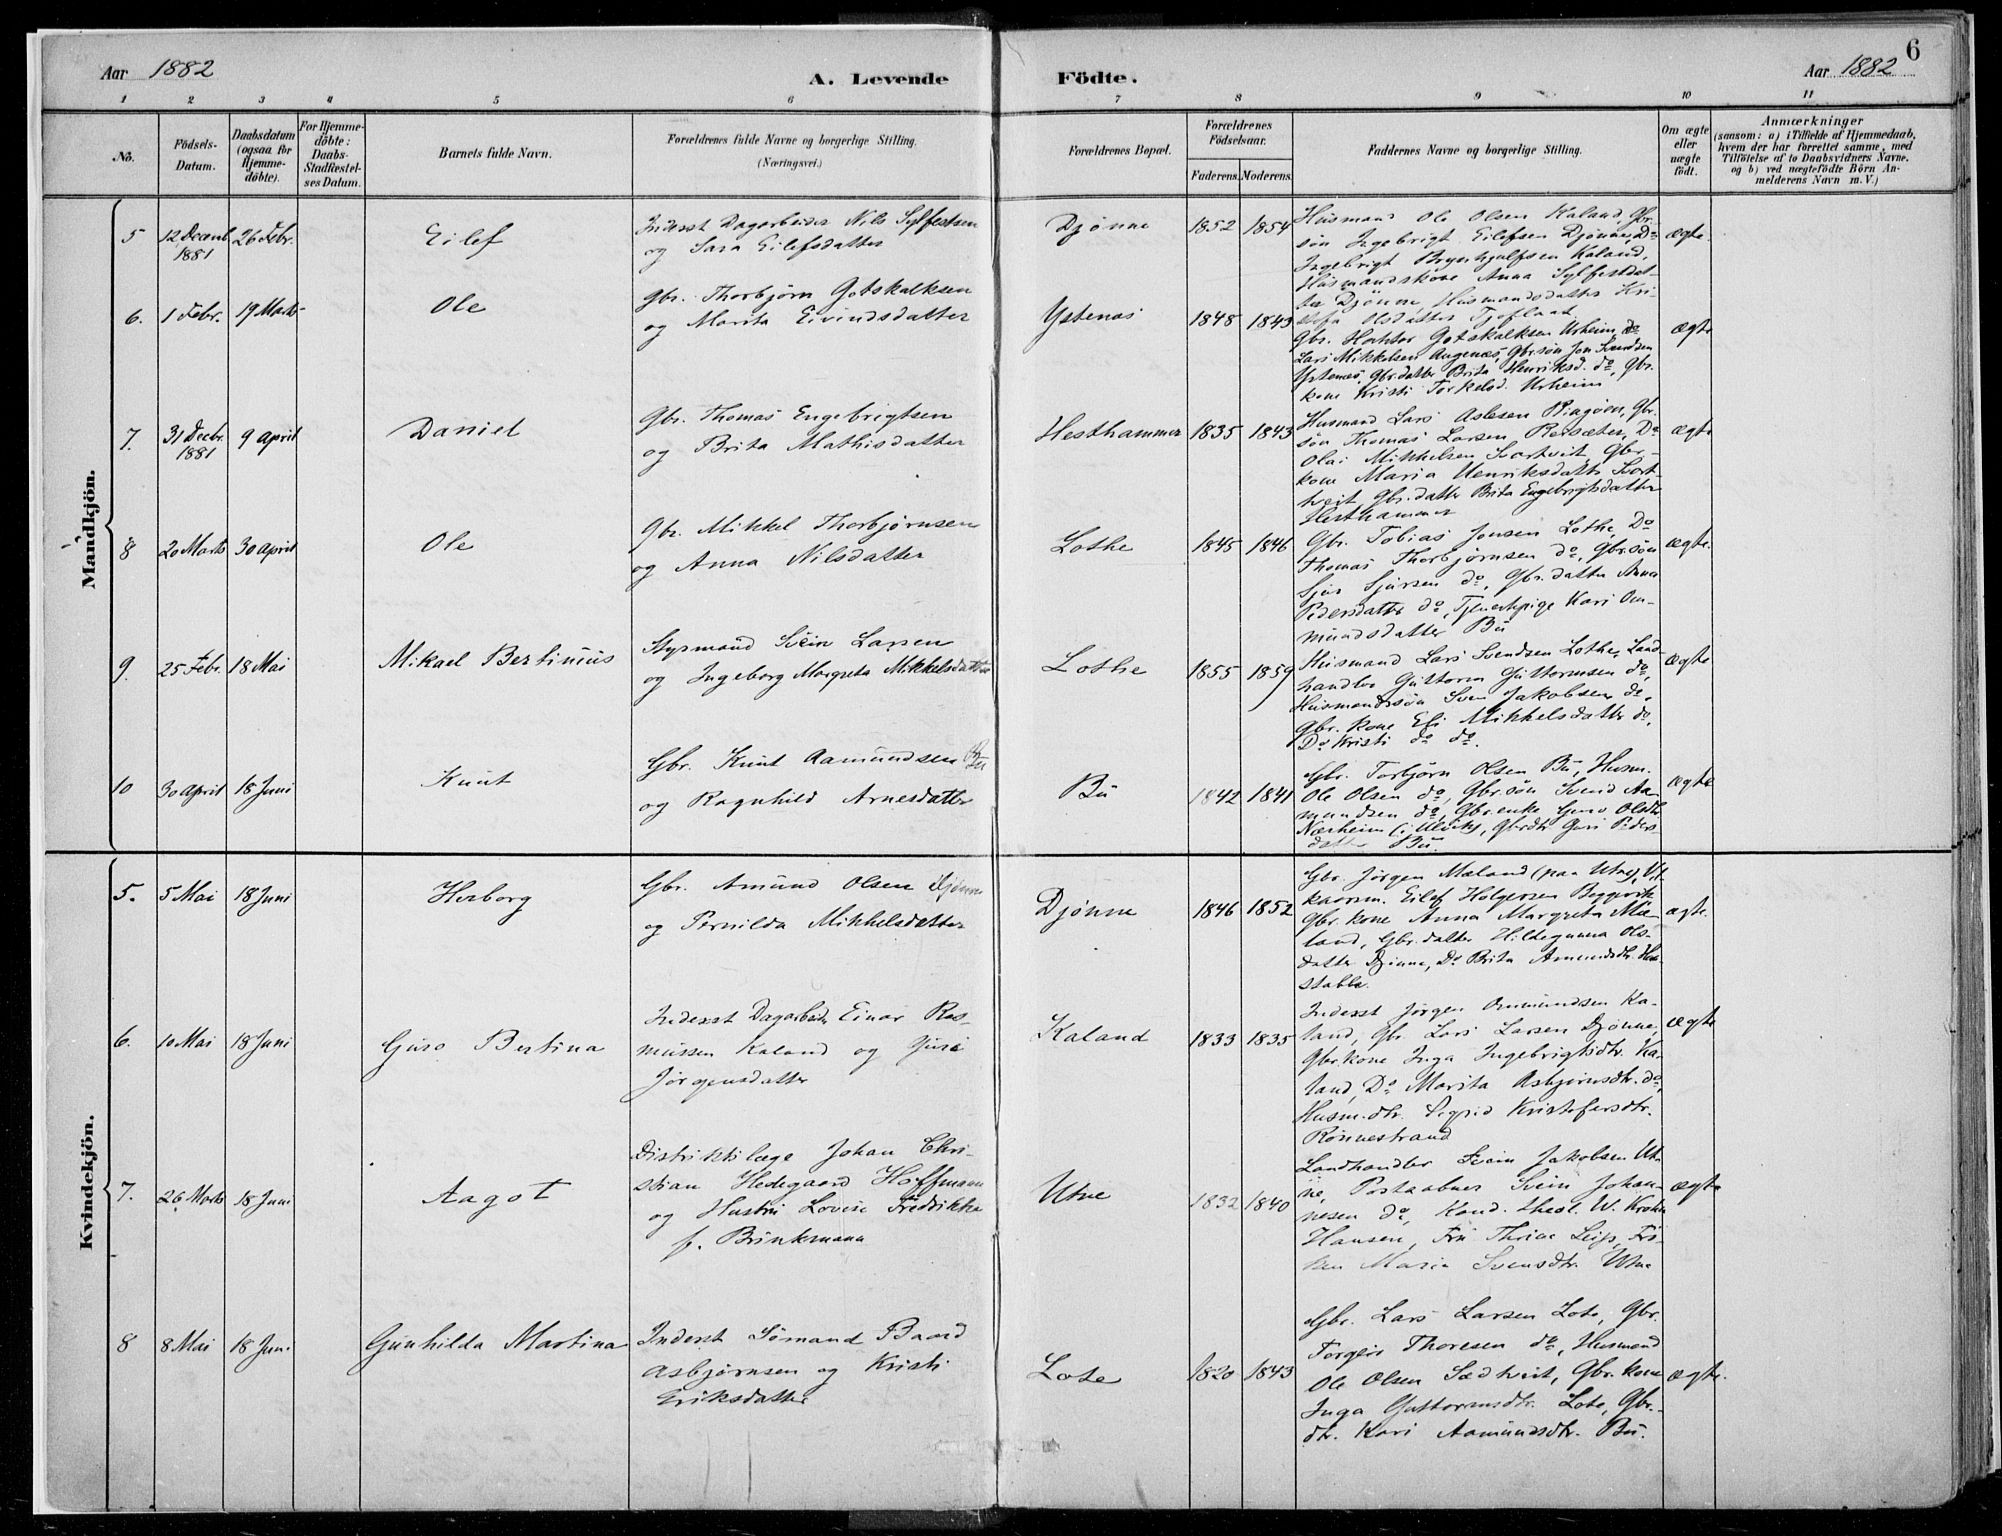 Aar 1882
A. Levende Födte.
6
Aar 1882
1 2 3 4 5 6 7 8 9 10 11
No.
Födsels-Datum.
Daabsdatum (ogsaa for Hjemme-døbte).
For Hjemme-døbte: Daabs-Stadfæstel-ses Datum.
Barnets fulde Navn.
Forældrenes fulde Navne og borgerlige Stilling. (Næringsvei.)
Forældrenes Bopæl.
Forældrenes Födselsaar.
Faderens. Moderens.
Faddernes Navne og borgerlige Stilling.
Om ægte eller uægte födt.
Anmærkninger
(saasom: a) i Tilfælde af Hjemmedaab, hvem der har forrettet samme, med Tilføielse af to Daabsvidners Navne, og b) ved uægtefødte Börn An-melderens Navn m. V.)
Mandkjön.
5 12 Decemb. 1881 26 Febr. Eilef
Inderst Dagarbeider Nils Sylfestsen
og Sara Eilefsdatter
Djønne 1852 1854
Husmand Ole Olsen Kaland, Gbr.
søn Ingebrigt Eilefsen Djønne, Do
Ingebrigt Brynhjulfsen Kaland,
Husmandskone Anna Sylfestdat-
ter Djönne, Husmandsdatter Kri-
stofa Olsdatter Tjoflaat
ægte.
6. 1 Febr. 19 Marts Ole
Gbr. Thorbjörn Gotskalksen
og Marita Eivindsdatter
Ystenæs 1848 1843
Gbr. Gotskalksen Urheim, do
Lars Mikkelsen Augenæs, Gbr.søn Jon Svendsen
Ystenæs, Gbr.datter Brita Henriksd. do, Gbr.
kone Kristi Torkelsd. Urheim
ægte
7. 31 Decbr. 1881 9 April Daniel
Gbr. Thomas Engebrigtsen
og Brita Mathisdatter
Hesthammer 1835 1843
Husmand Lars Aslesen Ringøen, Gbr.
søn Thomas Larsen Reisæter, Do
Olai Mikkelsen Svartveit, Gbr-
kone Maria Henriksdatter Svart-
veit, Gbr.datter Brita Engebrigtsdatter
Hesthammer
ægte
8 20 Marts 30 April Ole
Gbr. Mikkel Thorbjørnsen
og Anna Nilsdatter
Lothe 1845 1846
Gbr. Tobias Jonsen Lothe, Do
Thomas Thorbjørnsen do, Gbr.søn
Sjur Sjursen do, Gbr.datter Anna
Pedersdatter do, Tjenestepige Kari Om-
mundsdatter Bu
ægte.
9. 25 Febr. 18 Mai Mikael Bertinius
Styrmand Svein Larsen
og Ingeborg Margreta Mikkelsdatter
Lothe 1855 1859
Husmand Lars Svendsen Lothe, Land-
handler Guttorm Guttormsen do,
Husmandssøn Sven Jakobsen do,
Gbr. kone Eli Mikkelsdatter do,
Do Kristi do do.
ægte
10 30 April 18 Juni Knut
Gbr. Knut Aamundsen Bu
og Ragnhild Arnesdatter
Bu 1842 1841
Gbr. Torbjørn Olsen Bu, Husm.
Ole Olsen do, Gbr.søn Svend Aa-
mundsen do, Gbr.enke Guro Olsdtr
Nærheim (i Ulvik), Gbrdtr Guri Peders-
datter Bu.
ægte
Kvindekjön.
5. 5 Mai 18 Juni Herborg
Gbr. Amund Olsen Djønne
og Pernilda Mikkelsdatter
Djönne 1846 1852
Gbr. Jørgen Mæland (paa Utne),
Eilef Holgersen
Gbr. kone Anna Margreta Mæ-
land, Gbr. datter Hildegunna Ols-
datter Djønne, Do Brita Amundsdtr.
ægte.
6. 10 Mai 18 Juni Guro Bertina
Inderst Dagarbeider Einar Ras-
mussen Kaland og Guri
Jörgensdatter
Kaland 1833 1835
Inderst Jörgen Ommundsen Ka-
land, Gbr. Lars Larsen Djønne,
Gbr.kone Inga Ingebrigtsdtr. Ka-
land, Do Marita Asbjørnsdtr. do,
Husm.dtr. Sigrid Kristofersdtr.
Rönnestrand
ægte
7. 26 Marts 18 Juni Aagot
Distriktslæge Johan Chri-
stian Hedegaard Hoffmann
og Hustru Lovise Fredrikke
f. Brinkmann
Utne 1832 1840
Landhandler Svein Jakobsen Ut-
ne, Postaabner Svein Johan-
nesen do, Kand. theol. W. Krohn
Hansen, Fru Thrine Frø-
ken Maria Svensdtr. Utne
ægte
8 8 Mai 18 Juni Gunhilda Martina
Inderst Sømand Baard
Asbjørnsen og Kristi
Eriksdatter
Lote 1820 1843
Gbr. Lars Larsen Lote, Gbr.
Torgeir Thoresen do, Husmand
Ole Olsen Sædtveit, Gbr. kone
Inga Guttormsdtr. Lote, Gbr.-
dtr. Kari Aamundsdtr. Bu.
ægte.